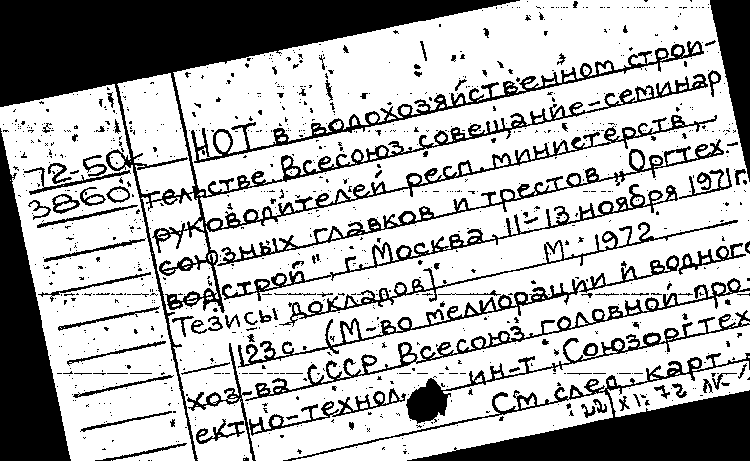 НОТ в водохозяйственном строи-
72-50к
тельстве Всесоюз. совещание-семинар
3860
руководителей респ. министерств,
союзных главков и трестов „Оргтех-
водстрой", г. Москва, 11-13 ноября 1971г.
[Тезисы докладов]. М., 1972
123 с. (М-во мелиорации и водного
хоз-ва СССР. Всесоюз. головной про-
ектно-технол. ин-т „Союзоргтех
См. след. карт.